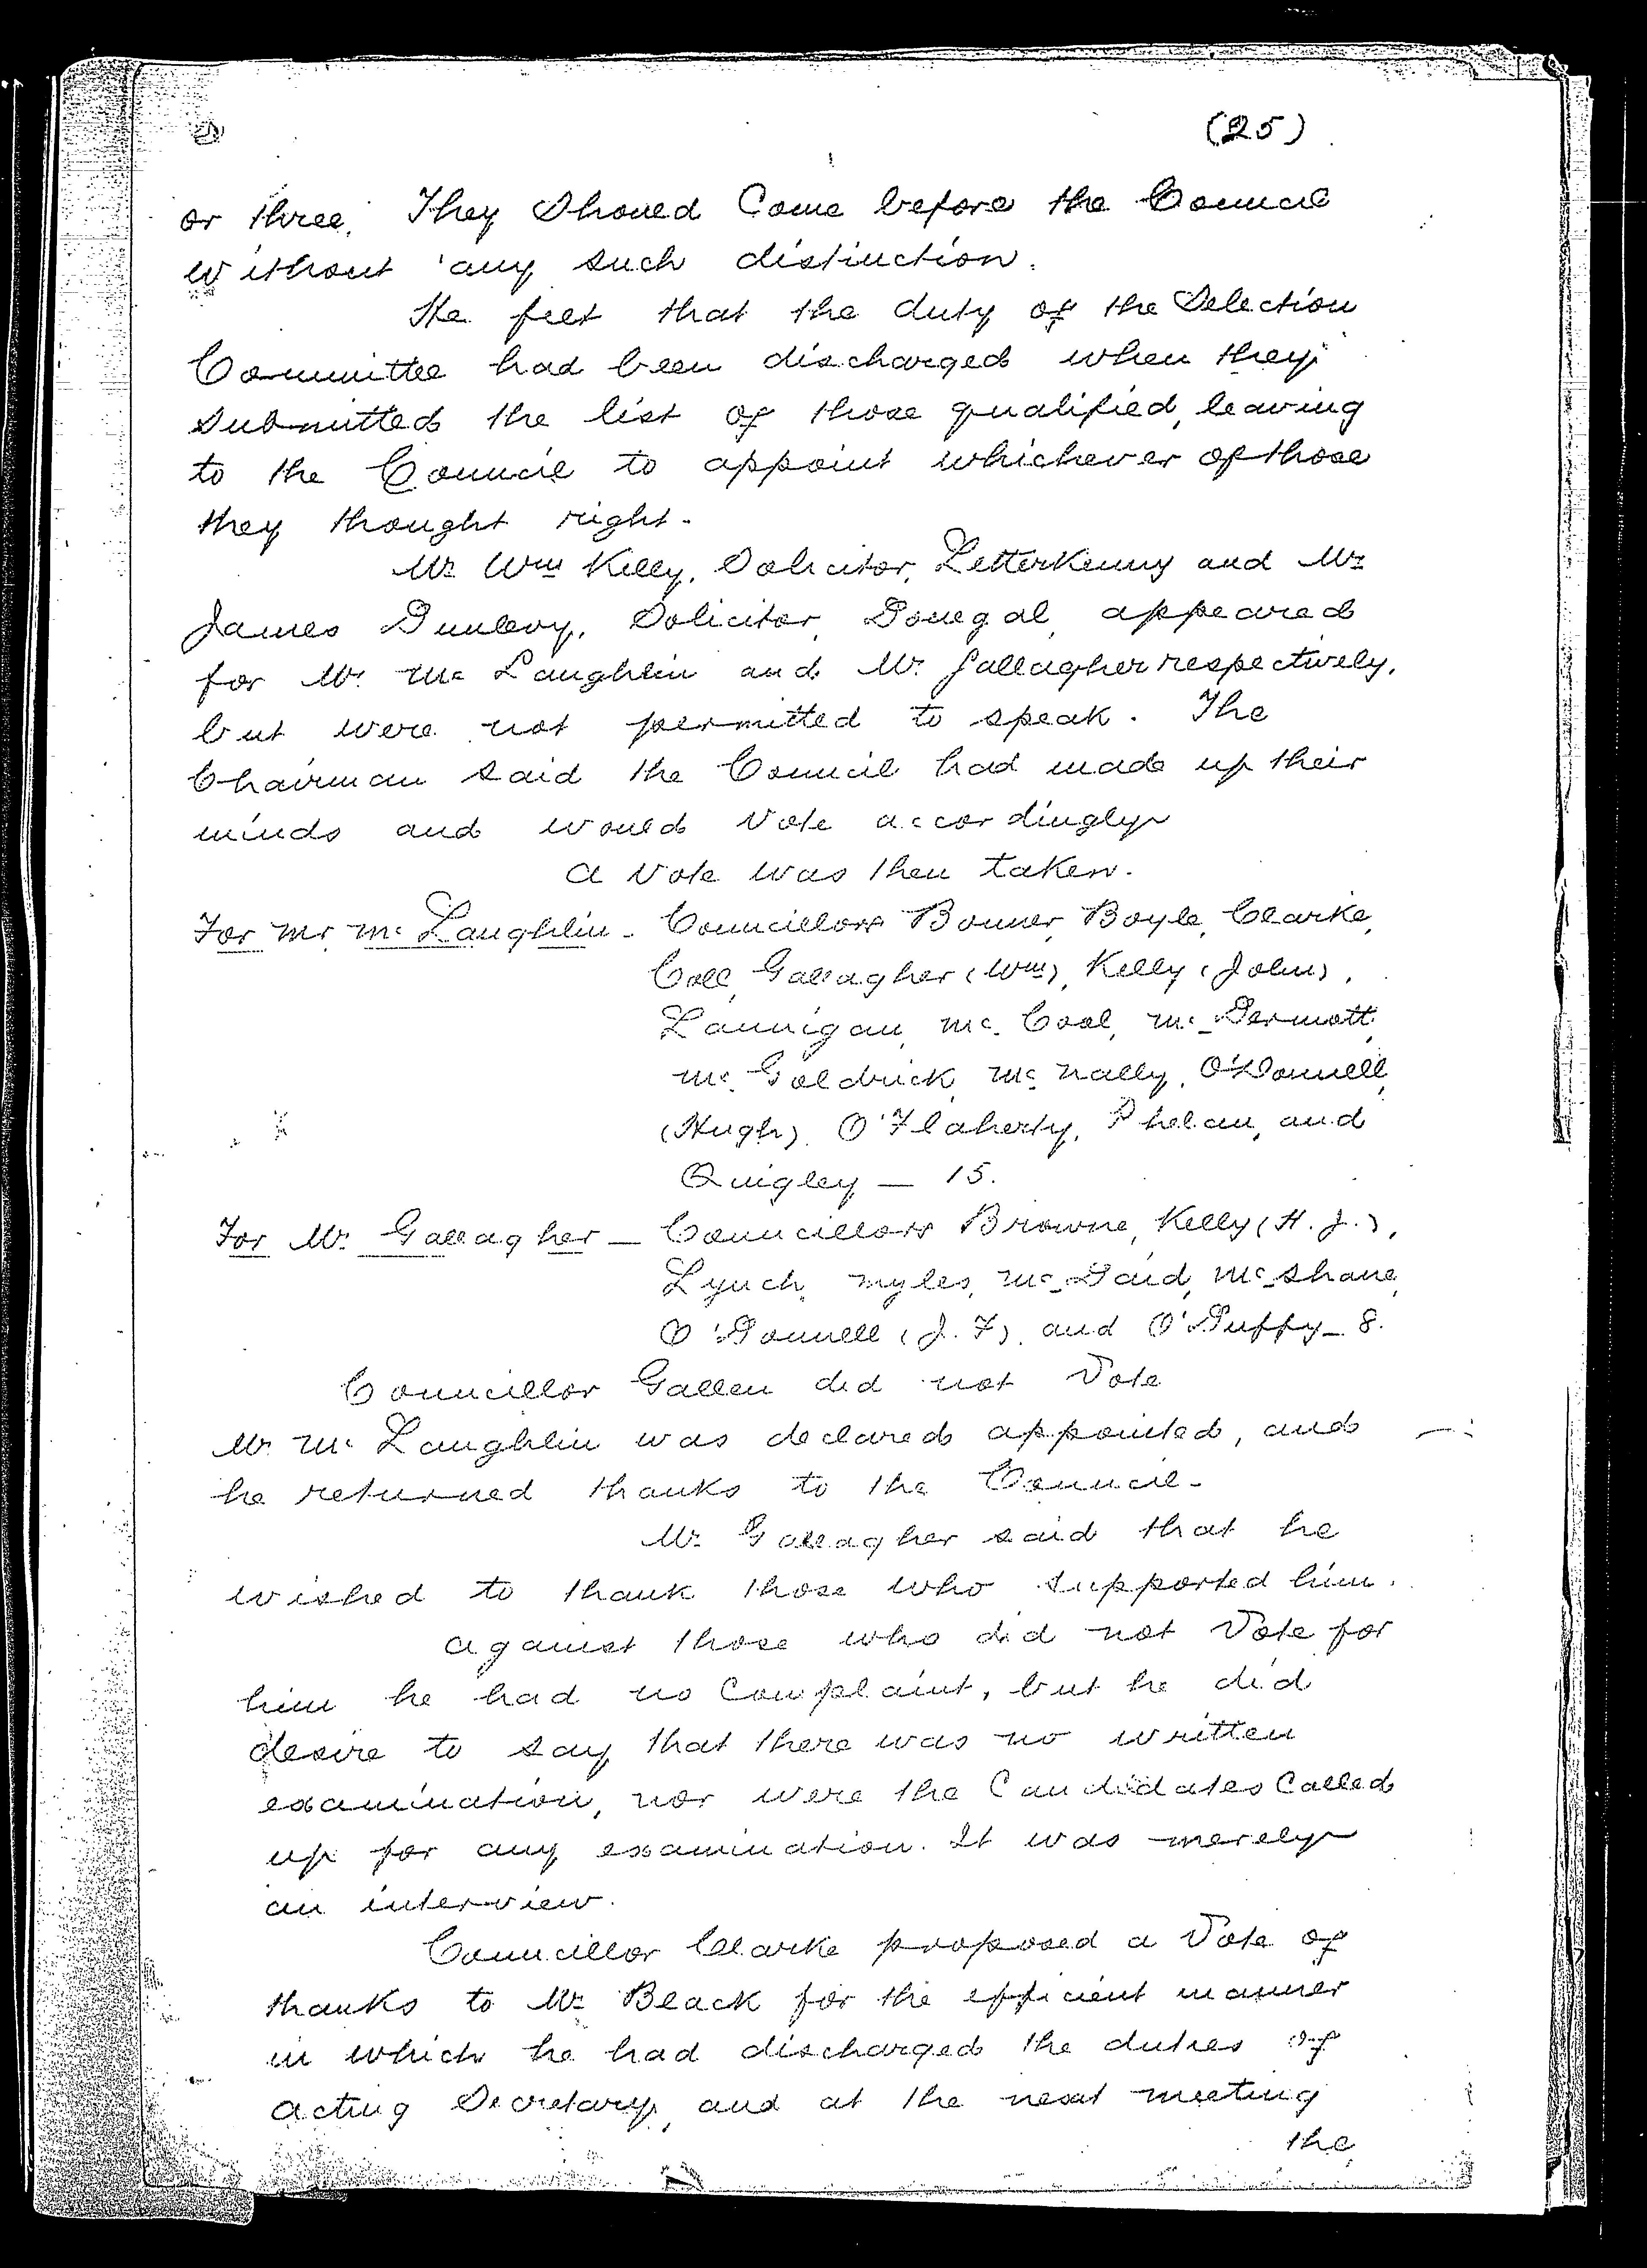 (25)
or three. They should Come before the Council
without any such distinction.
He felt that the duty of the Selection
Committee had been discharged when they
submitted the list of those qualified, leaving
to the Council to appoint whichever of those
they thought right.
Mr Wm Kelly, Solicitor, Letterkenny and Mr
James Dunlevy, Solicitor, Donegal, appeared
for Mr. Mc Laughlin and Mr. Gallagher respectively,
but were not permitted to speak. The
Chairman said the Council had made up their
minds and would vote accordingly
A vote was then taken.
For Mr. Mc Laughlin - Councillors Bonner, Boyle, Clarke,
Coll, Gallagher (Wm), Kelly (John),
Lannigan, Mc Cool, Mc Dermott,
Mc Goldrick, Mc Nally, O'Donnell,
(Hugh), O'Flaherty, Phelan, and
Quigley — 15.
For Mr. Gallagher — Councillors Browne, Kelly (H. J.),
Lynch, Myles, Mc Daid, Mc Shane,
O'Donnell (J. F), and O'Duffy - 8.
Councillor Gallen did not Vote
Mr. Mc Laughlin was declared appointed, and
he returned thanks to the Council -
Mr. Gallagher said that he
wished to thank those who supported him.
Against those who did not Vote for
him he had no Complaint, but he did
desire to say that there was no written
examination, nor were the Candidates Called
up for any examination. It was merely
an interview.
Councillor Clarke proposed a Vote of
thanks to Mr. Black for the efficient manner
in which he had discharged the duties of
Acting Secretary, and at the next meeting
the